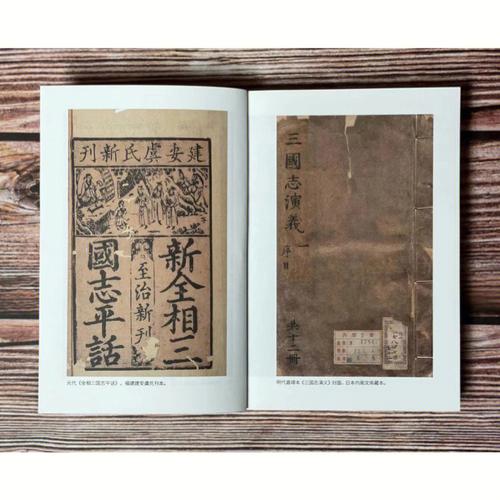 建安虞氏新刊
新全相三
至治新刊
國志平話
元代《全相三国志平话》，福建建安虞氏刊本。
三國志演義 一
序目
共十二冊
明代嘉靖本《三国志演义》封面，日本内阁文库藏本。